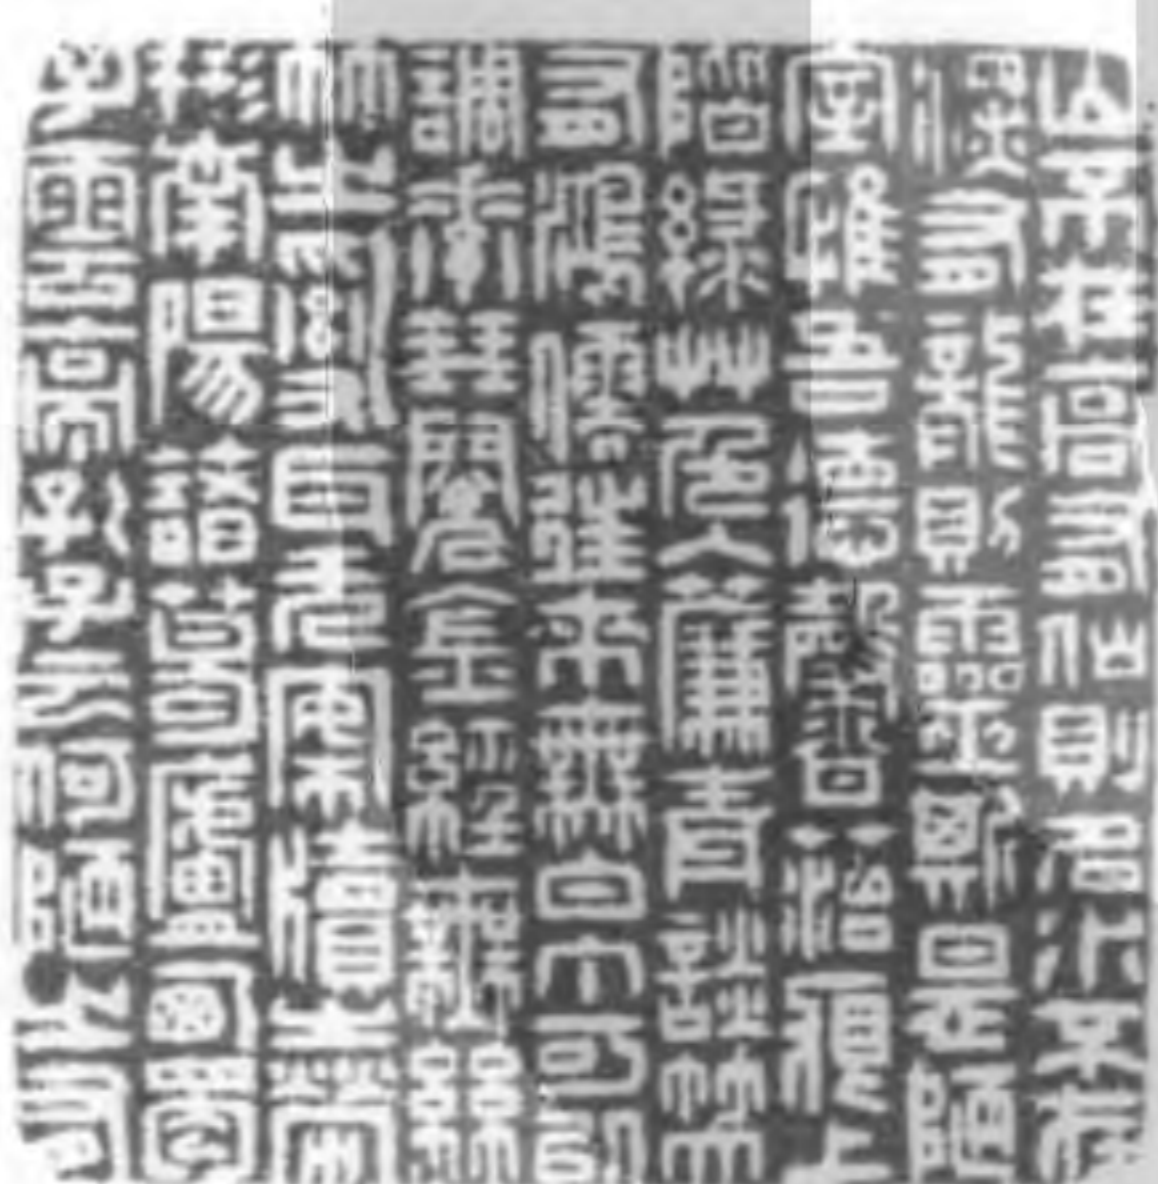 山不在高有仙則名水不在
深有龍則靈斯是陋
室惟吾德馨苔痕上
階綠艸色入簾青談笑
有鴻儒往來無白丁可以
調素琴閱金經無絲
竹之亂耳无案牘之勞
形南陽諸葛廬西蜀
子雲亭孔子云何陋之有